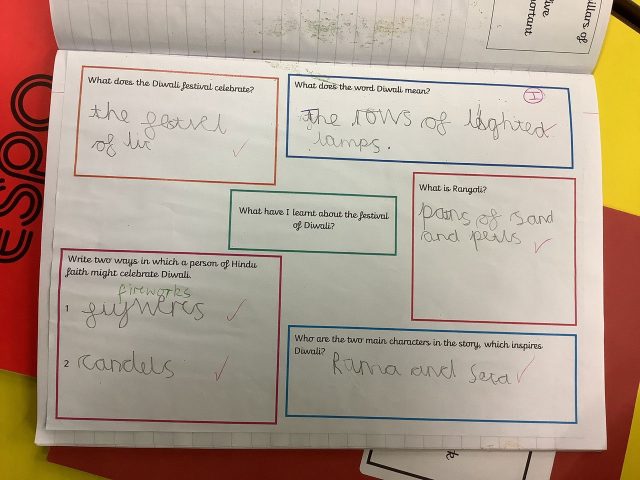 illars of
five
portant
espo
What does the Diwali festival celebrate?
the festvel
of lit
What does the word Diwali mean?
the rows of lighted
lamps.
What is Rangoli?
of sand
and
What have I learnt about the festival
of Diwali?
Write two ways in which a person of Hindu
faith might celebrate Diwali.
fireworks
1
2 candels
Who are the two main characters in the story, which inspires
Diwali?
Rama and Seta